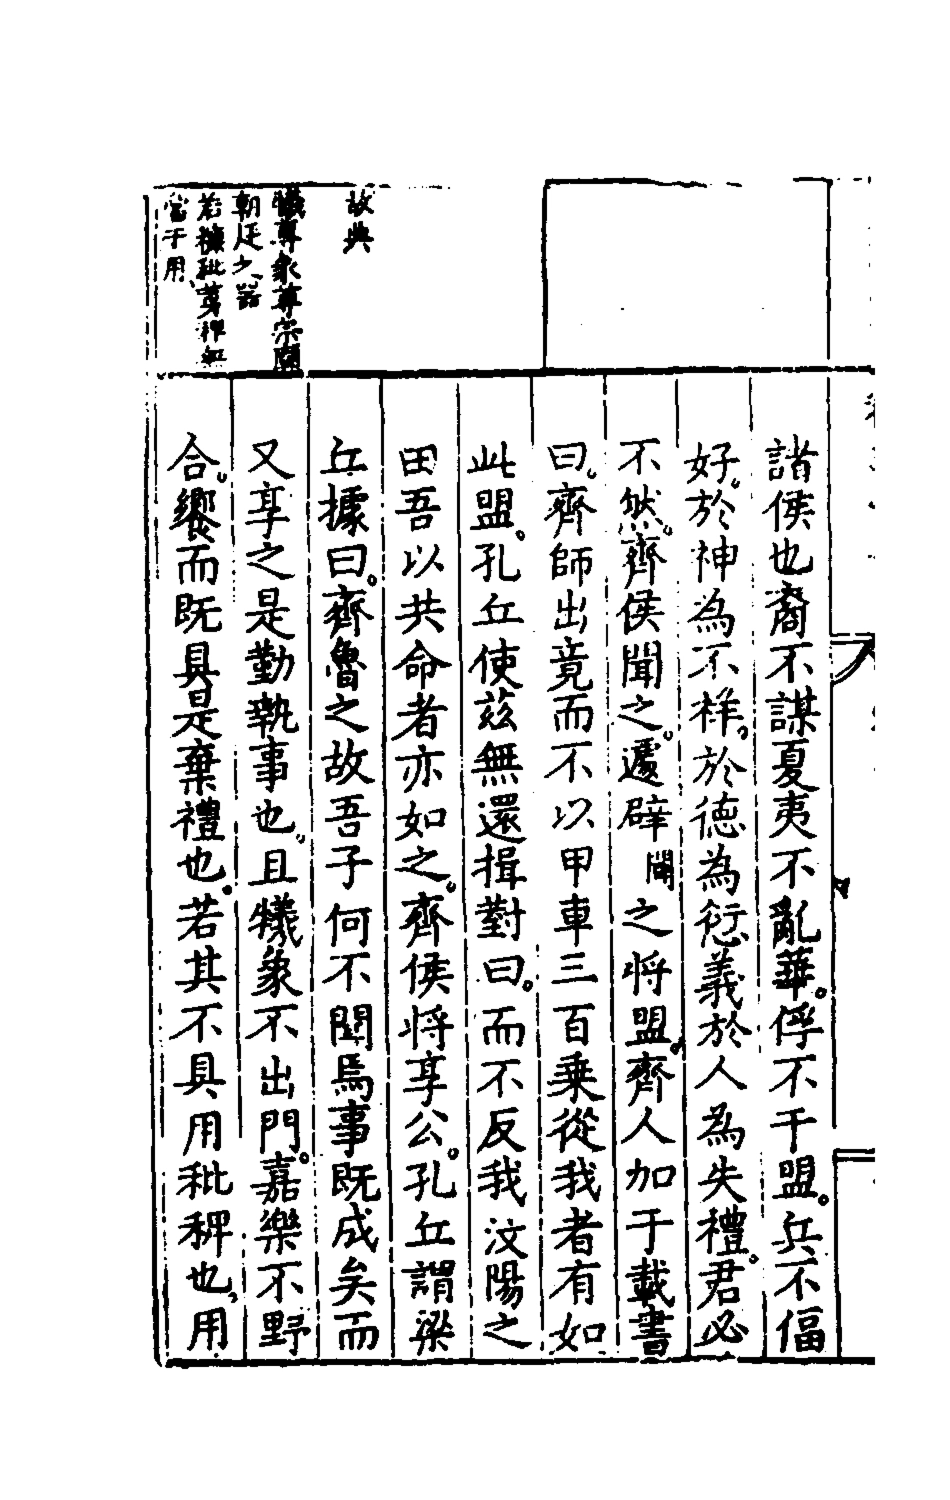 諸侯也裔不謀夏夷不亂華俘不干盟兵不偪
好於神為不祥於德為愆義於人為失禮君必
不然齊侯聞之遽辟聞之將盟齊人加于載書
曰齊師出竟而不以甲車三百乗從我者有如
此盟孔丘使茲無還揖對曰而不反我汶陽之
田吾以共命者亦如之齊侯將享公孔丘謂梁
丘據曰齊魯之故吾子何不聞焉事既成矣而
又享之是勤執事也且犧象不出門嘉樂不野
合饗而既具是棄禮也若其不具用秕稗也用
故典
犧尊象尊宗廟
朝廷之器
若穢秕茀稗無
當于用